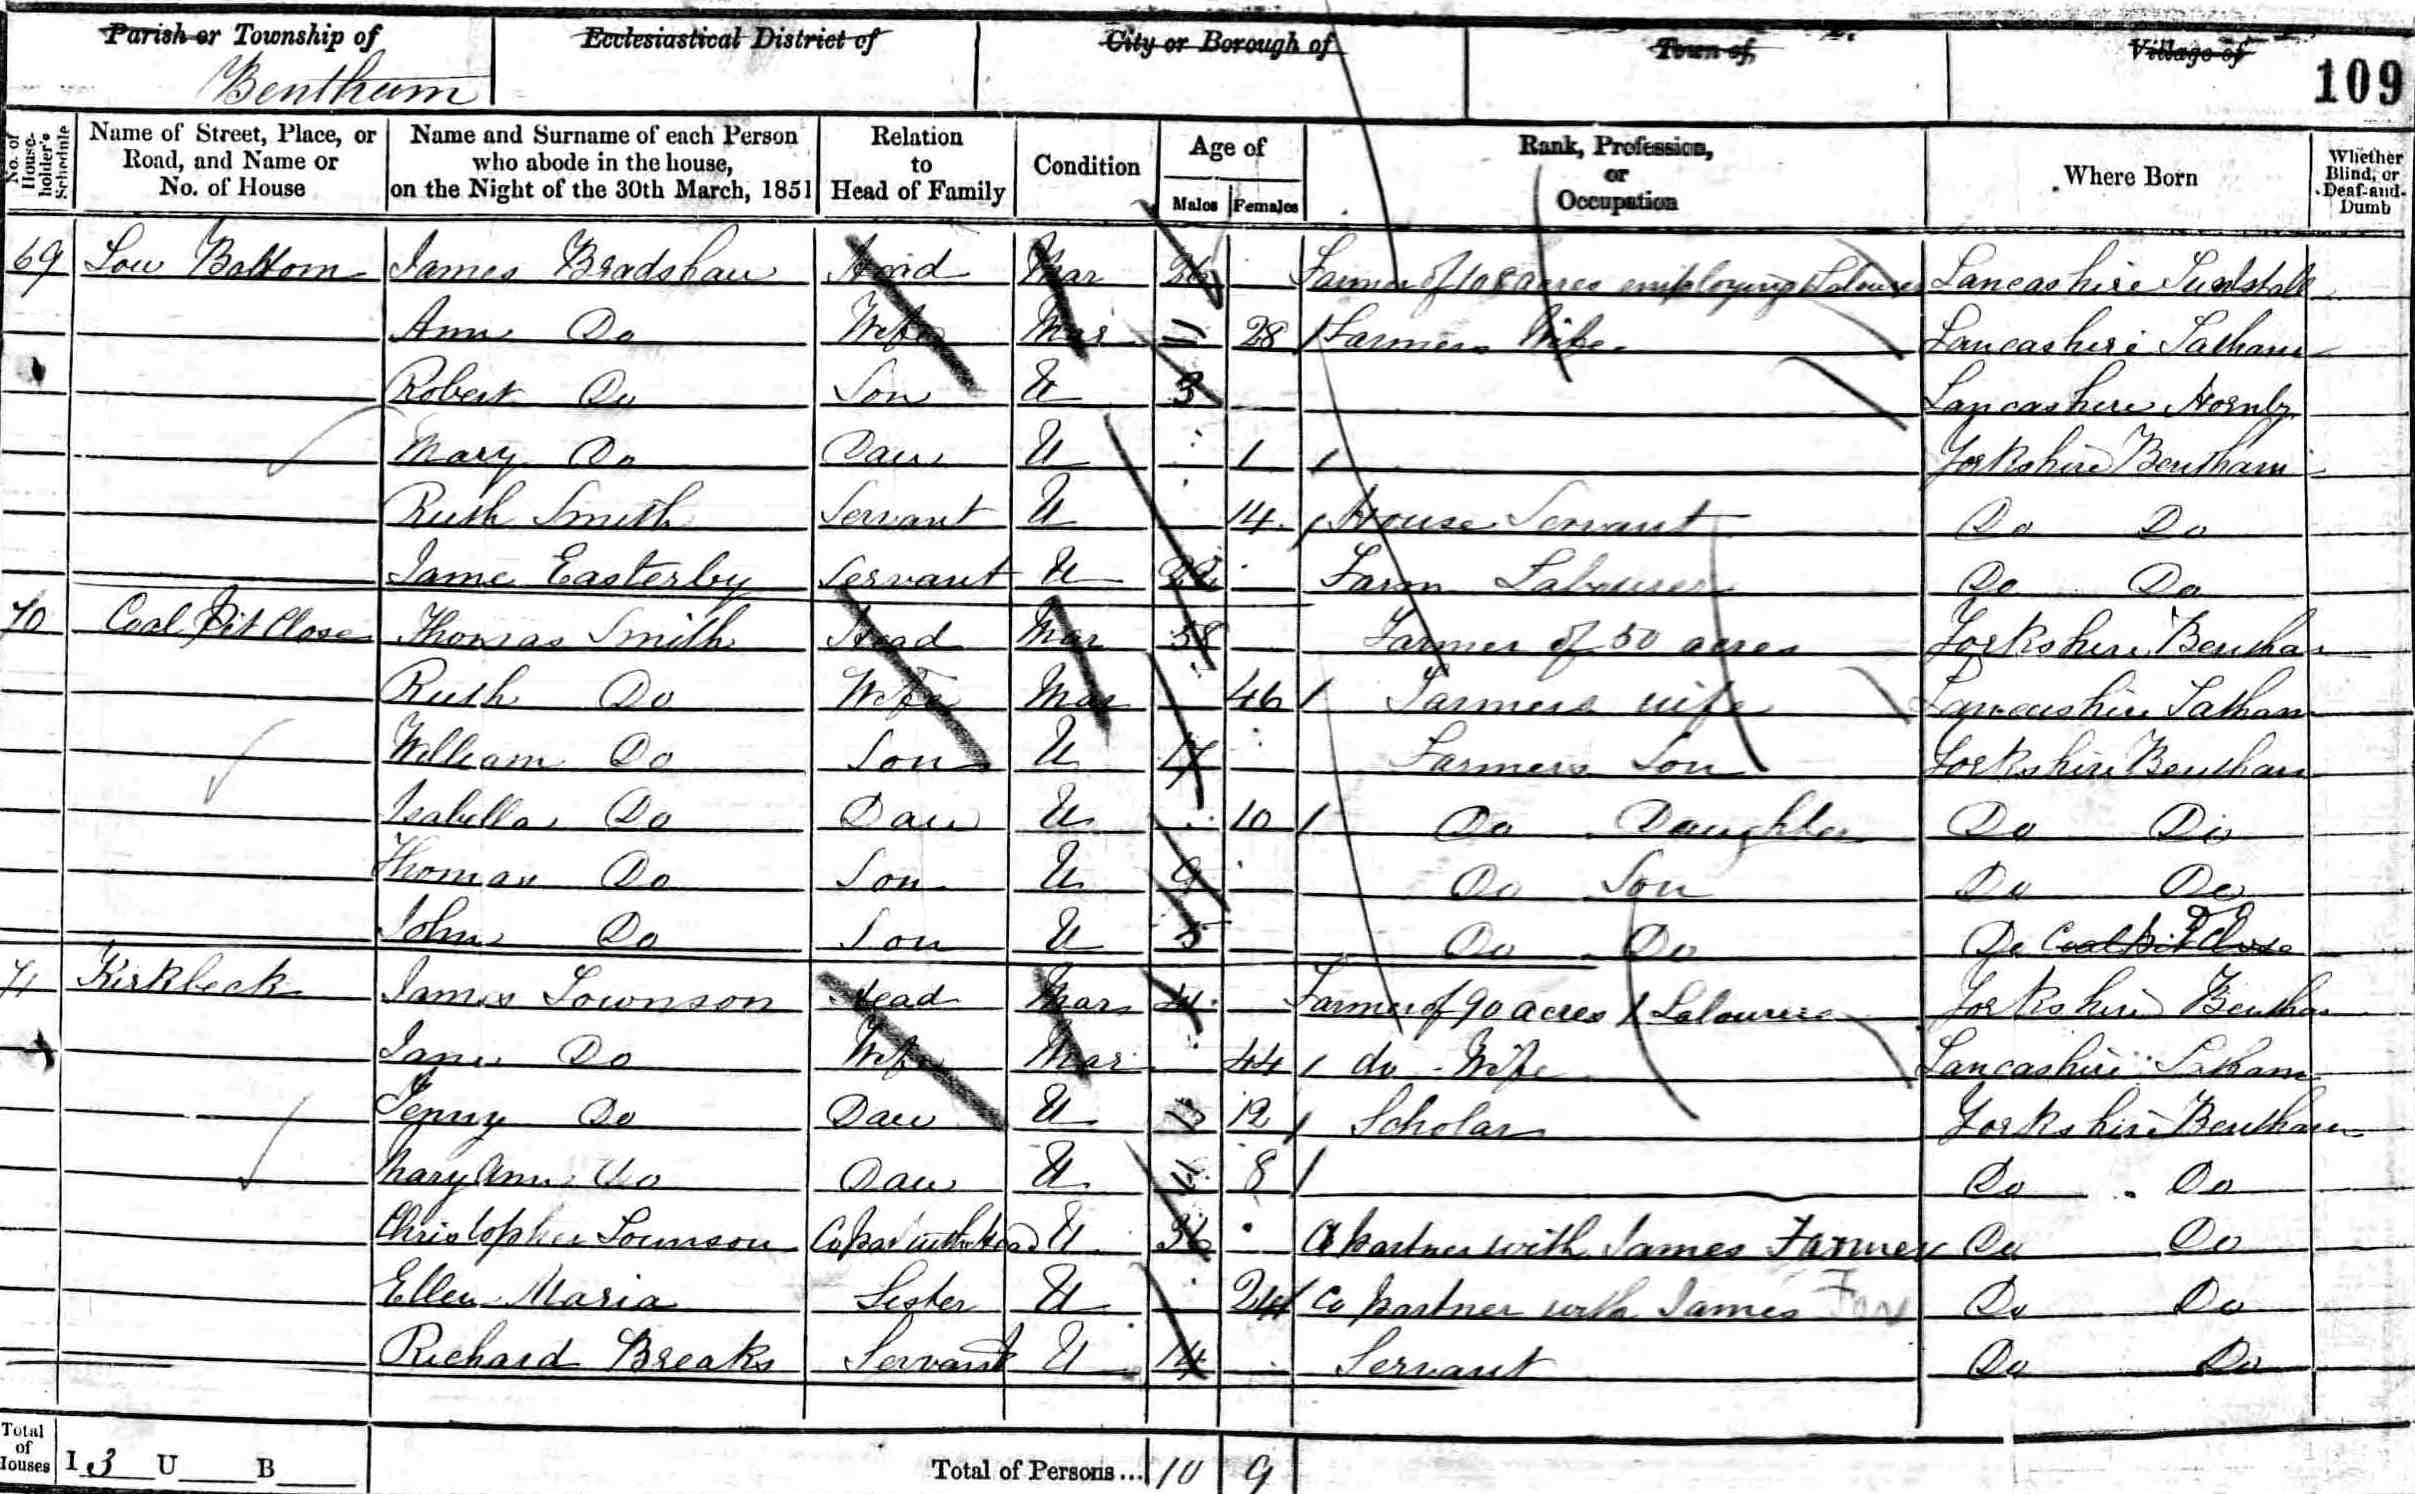 Parish or Township of Ecclesiastical District of City or Borough of Town of Village of
Bentham 109
No. of House-holder's Schedule Name of Street, Place, or Road, and Name or No. of House Name and Surname of each Person who abode in the house, on the Night of the 30th March, 1851 Relation to Head of Family Condition Age of Males Females Rank, Profession, or Occupation Where Born Whether Blind, or Deaf-and-Dumb
69 Low Bottom James Bradshaw Head Mar 26 Farmer of 108 acres employing Labourer Lancashire Tunstall
Ann Do Wife Mar 28 Farmers Wife Lancashire Tatham
Robert Do Son U 3 Lancashire Hornby
Mary Do Daur U 1 Yorkshire Bentham
Ruth Smith Servant U 14 House Servant Do Do
Jame Easterby Servant U 22 Farm Labourer Do Do
70 Coal Pit Close Thomas Smith Head Mar 58 Farmer of 50 acres Yorkshire Bentham
Ruth Do Wife Mar 46 Farmers wife Lancashire Tatham
William Do Son U 17 Farmers Son Yorkshire Bentham
Isabella Do Daur U 10 Do Daughter Do Do
Thomas Do Son U 9 Do Son Do Do
John Do Son U 5 Do Do Do Coal Pit Close Do
71 Kirkbeck James Townson Head Mar Farmer of 90 acres 1 Labourer Yorkshire Bentham
Jane Do Wife Mar 44 do Wife Lancashire Tatham
Jenny Do Daur U 12 Scholar Yorkshire Bentham
Mary Ann Do Daur U 8 Do Do
Christopher Townson Copar with Head U 36 Copartner with James Farmer Do Do
Ellen Maria Sister U 24 Co partner with James Far Do Do
Richard Breaks Servant U 14 Servant Do Do
Total of Houses I 3 U B Total of Persons... 10 9